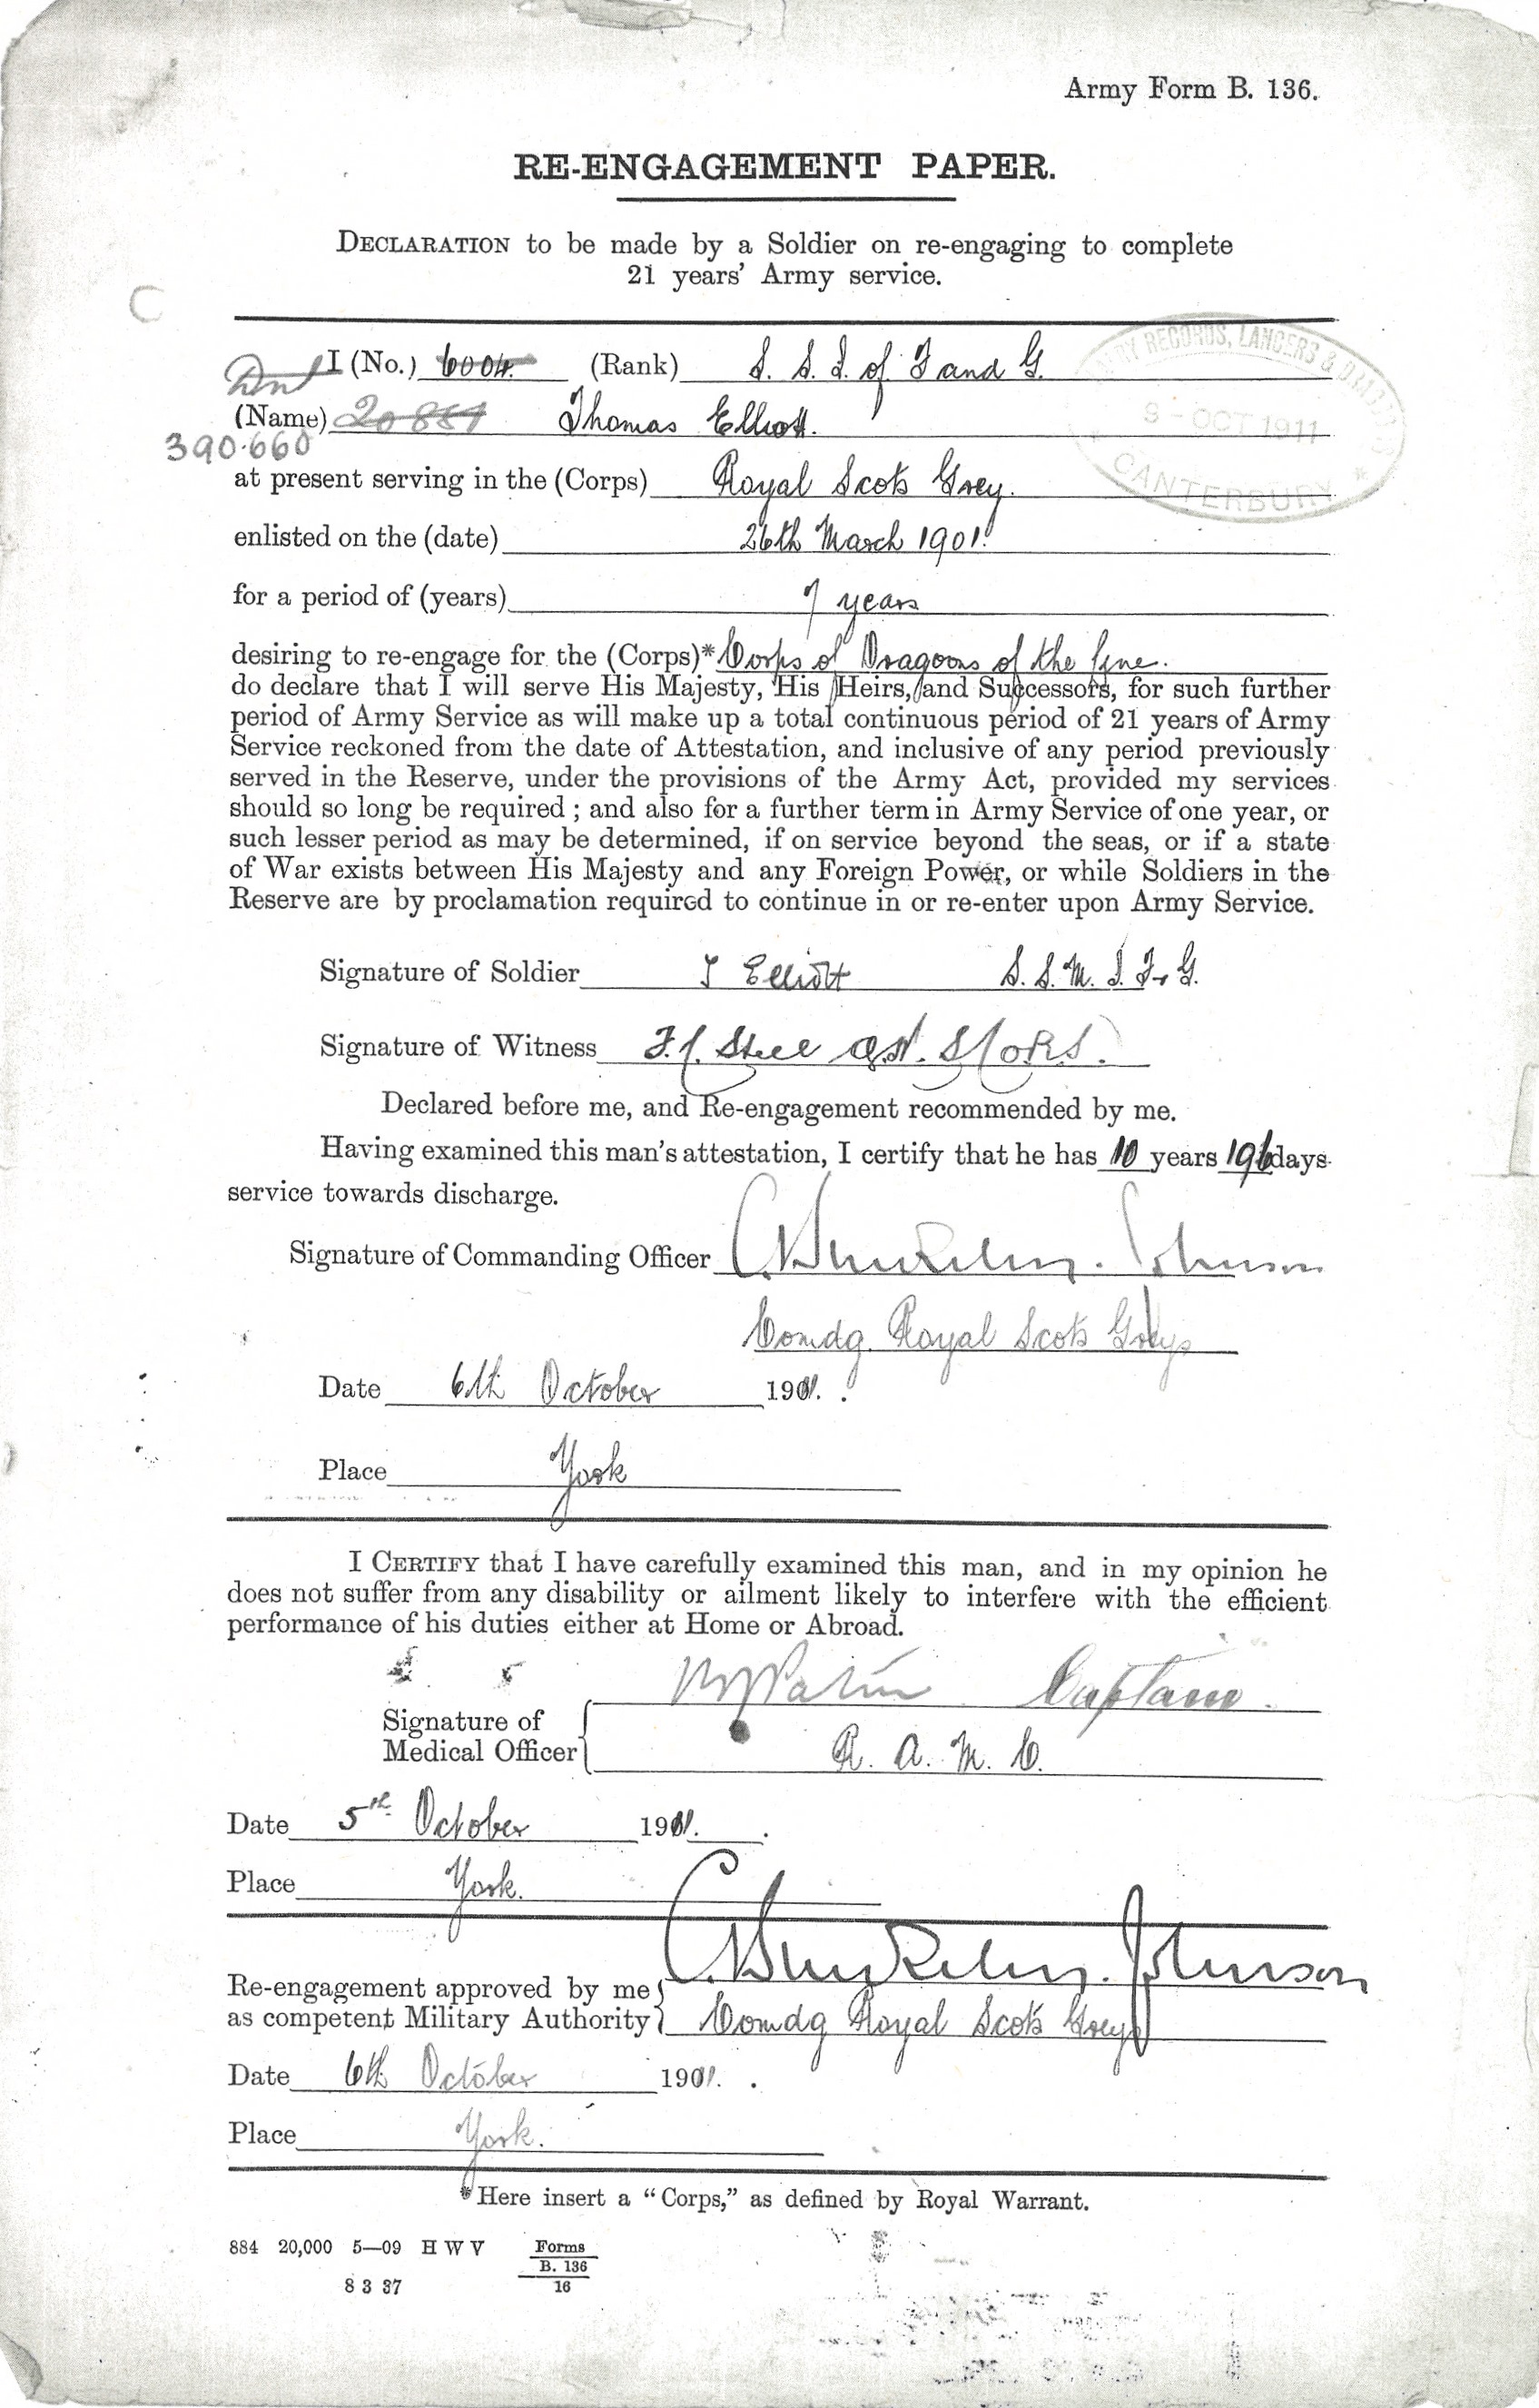 Army Form B. 136.
RE-ENGAGEMENT PAPER.
DECLARATION to be made by a Soldier on re-engaging to complete
21 years' Army service.
C
I (No.) 6004 (Rank) S. S. I. of F and G.
(Name) 20881 Thomas Elliott.
390.660
RECORDS, LANCERS &
9 - OCT 1911
CANTERBURY
at present serving in the (Corps) Royal Scots Grey.
enlisted on the (date) 26th March 1901.
for a period of (years) 7 years
desiring to re-engage for the (Corps)* Corps of Dragoons of the line.
do declare that I will serve His Majesty, His Heirs, and Successors, for such further
period of Army Service as will make up a total continuous period of 21 years of Army
Service reckoned from the date of Attestation, and inclusive of any period previously
served in the Reserve, under the provisions of the Army Act, provided my services
should so long be required; and also for a further term in Army Service of one year, or
such lesser period as may be determined, if on service beyond the seas, or if a state
of War exists between His Majesty and any Foreign Power, or while Soldiers in the
Reserve are by proclamation required to continue in or re-enter upon Army Service.
Signature of Soldier T Elliott S. S. M. I. F. G.
Signature of Witness Steel
Declared before me, and Re-engagement recommended by me.
Having examined this man's attestation, I certify that he has 10 years 196 days
service towards discharge.
Signature of Commanding Officer Johnson
Comdg. Royal Scots Greys
Date 6th October 1911.
Place York
I CERTIFY that I have carefully examined this man, and in my opinion he
does not suffer from any disability or ailment likely to interfere with the efficient
performance of his duties either at Home or Abroad.
Captain.
Signature of
Medical Officer R. A. M. C.
Date 5th October 1911.
Place York.
Re-engagement approved by me Johnson
as competent Military Authority Comdg Royal Scots Greys
Date 6th October 1911.
Place York.
*Here insert a "Corps," as defined by Royal Warrant.
884 20,000 5—09 H W V Forms
B. 136
8 3 37 16